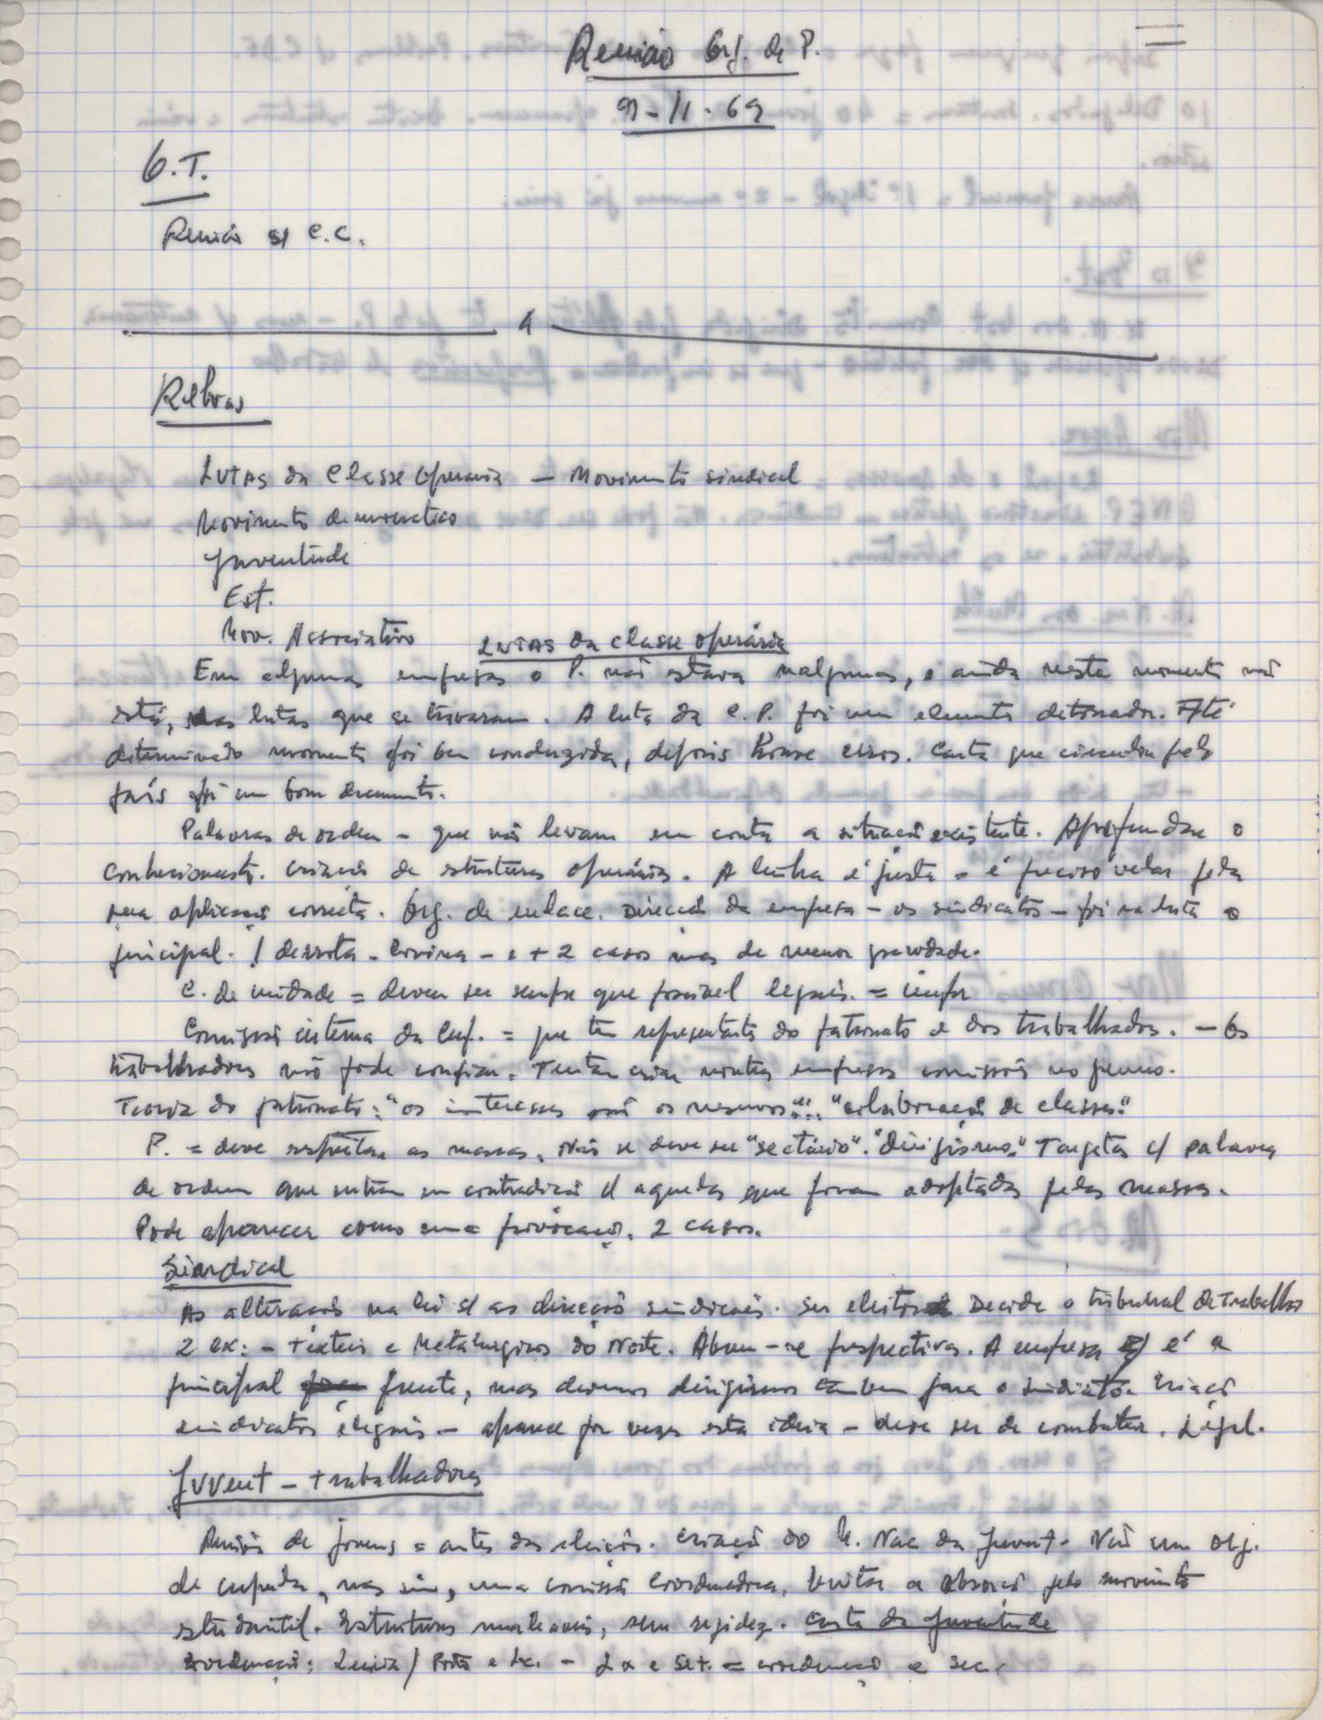 Reunião Org. de P.
9-11-69
O.T.
Reunião s/ C.C.
1
Lutas da Classe Operária – Movimento sindical
Movimento democrático
Juventude
Est.
Mov. Associativo
Lutas da classe operária
Em algumas empresas o P. não estava nalgumas, e ainda neste momento não
está, nas lutas que se travaram. A luta da C.P. foi um elemento detonador. Até
determinado momento foi bem conduzida, depois houve erros. Carta que circulou pelo
país foi um bom documento.
Palavras de ordem – que não levam em conta a situação existente. Aprofundar o
conhecimento. Criação de estruturas operárias. A linha é justa = é preciso velar pela
sua aplicação correcta. Org. de enlace. Direcção da empresa – os sindicatos – foi na luta o
principal. 1 derrota – Covina – e + 2 casos mas de menor gravidade.
C. de unidade = devem ser sempre que possível legais. =
Comissão interna da Emp. = que tem representantes do patronato e dos trabalhadores. – Os
trabalhadores não pode confiar. Tentar criar noutras empresas comissões no género.
Teoria do patronato: "os interesses são os mesmos" "colaboração de classes"
P. = deve respeitar as massas. Não se deve ser "sectário". "dirigismo" Tarjetas c/ palavras
de ordem que entram em contradição c/ aquelas que foram adoptadas pelas massas.
Pode aparecer como uma provocação. 2 casos.
Sindical
As alterações na lei s/ as direcções sindicais. Ser eleitos Decide o tribunal de Trabalho
2 ex: – Têxteis e Metalúrgicos do Norte. Abrem-se perspectivas. A empresa é a
principal frente, mas devemos dirigirmos também para o sindicato. Criação
sindicatos ilegais – aparece por vezes esta ideia – deve ser de combater. Legal.
Juvent – trabalhadores
Reunião de jovens = antes das eleições. Criação do M. Nac da Juvent. Não um org.
de cupula, mas sim, uma comissão coordenadora. Evitar a absorção pelo movimento
estudantil. Estruturas maleáveis, sem rigidez. Carta da Juventude
coordenação: Leiria / Porto e Lx. – Lx e Set. = coordenação e sec.